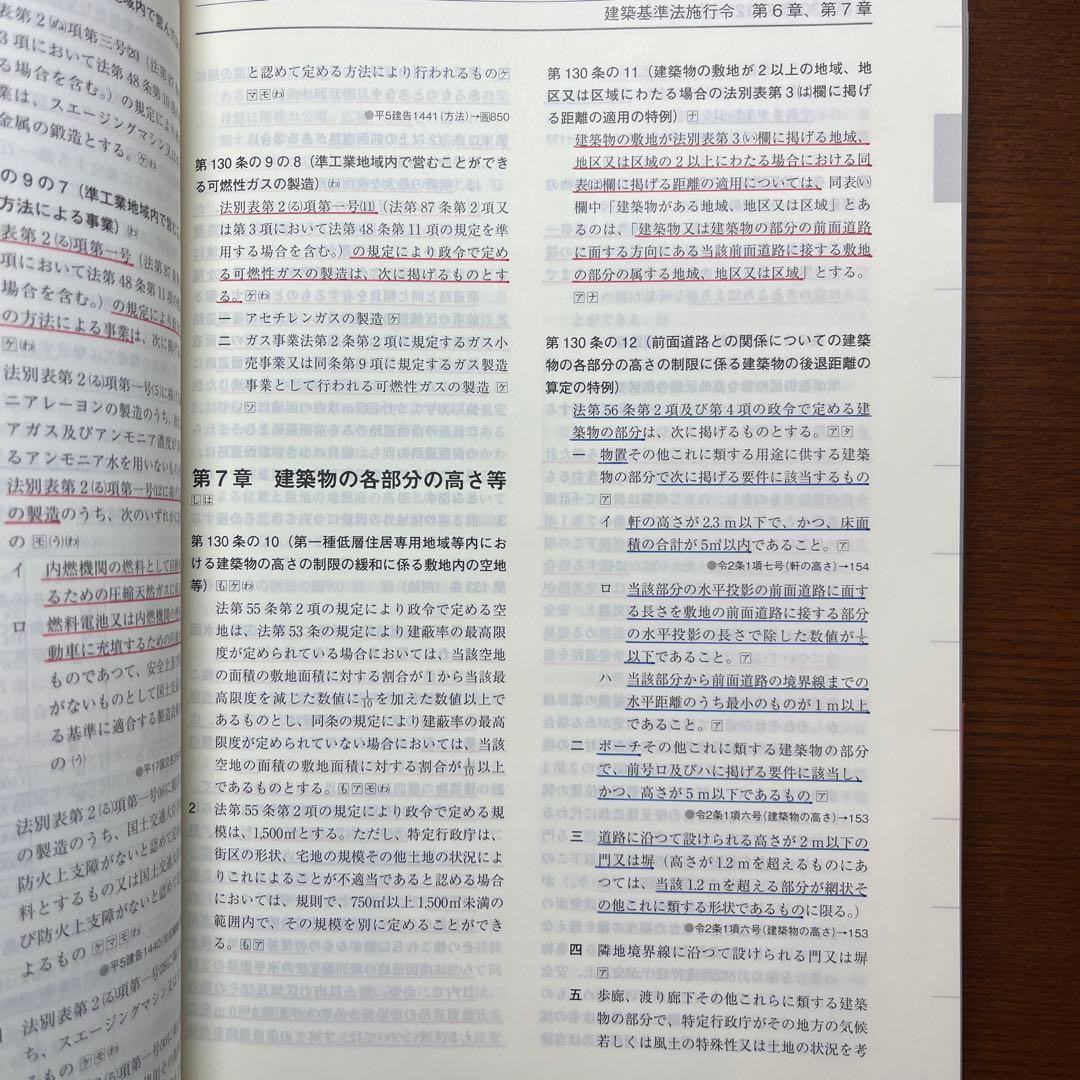 建築基準法施行令　第6章、第7章
表第2(ぬ)項第三号(20)（法第87
3項において法第48条第10項の
る場合を含む。）の規定により
業は、スエージングマシン又は
金属の鍛造とする。
の9の7（準工業地域内で営む
方法による事業）
表第2(る)項第一号（法第87条
項において法第48条第11項の
場合を含む。）の規定により
の方法による事業は、次に掲げ
法別表第2(る)項第一号(5)に掲げ
ニアレーヨンの製造のうち、
アガス及びアンモニア濃度が
るアンモニア水を用いないもの
法別表第2(る)項第一号(12)に掲げ
の製造のうち、次のいずれか
の
イ　内燃機関の燃料として自動
るための圧縮天然ガスに
ロ　燃料電池又は内燃機関の
動車に充填するための
ものであつて、安全上及び
がないものとして国土交
る基準に適合する製造設備
の
●平17国交告
法別表第2(る)項第一号(16)に掲げ
の製造のうち、国土交通大臣が
防火上支障がないと認めて
料とするもの又は国土交通大
び防火上支障がないと認めて
よるもの
●平5建告1440
法別表第2(る)項第一号
ち、スエージングマシン又は
と認めて定める方法により行われるもの ケ
マ モ (わ)
●平5建告1441（方法）→画850
第130条の9の8（準工業地域内で営むことができ
る可燃性ガスの製造）(わ)
法別表第2(る)項第一号(11)（法第87条第2項又
は第3項において法第48条第11項の規定を準
用する場合を含む。）の規定により政令で定め
る可燃性ガスの製造は、次に掲げるものとす
る。ケ (わ)
一　アセチレンガスの製造 ケ
二　ガス事業法第2条第2項に規定するガス小
売事業又は同条第9項に規定するガス製造
事業として行われる可燃性ガスの製造 ケ
ソ
第7章　建築物の各部分の高さ等
し は
第130条の10（第一種低層住居専用地域等内にお
ける建築物の高さの制限の緩和に係る敷地内の空地
等）も ケ (わ)
法第55条第2項の規定により政令で定める空
地は、法第53条の規定により建蔽率の最高限
度が定められている場合においては、当該空地
の面積の敷地面積に対する割合が1から当該最
高限度を減じた数値に1/10を加えた数値以上で
あるものとし、同条の規定により建蔽率の最高
限度が定められていない場合においては、当該
空地の面積の敷地面積に対する割合が1/10以上
であるものとする。も ア モ (わ)
2　法第55条第2項の規定により政令で定める規
模は、1,500㎡とする。ただし、特定行政庁は、
街区の形状、宅地の規模その他土地の状況によ
りこれによることが不適当であると認める場合
においては、規則で、750㎡以上1,500㎡未満の
範囲内で、その規模を別に定めることができ
る。も ア
第130条の11（建築物の敷地が2以上の地域、地
区又は区域にわたる場合の法別表第3(は)欄に掲げ
る距離の適用の特例）ナ
建築物の敷地が法別表第3(い)欄に掲げる地域、
地区又は区域の2以上にわたる場合における同
表(は)欄に掲げる距離の適用については、同表(い)
欄中「建築物がある地域、地区又は区域」とあ
るのは、「建築物又は建築物の部分の前面道路
に面する方向にある当該前面道路に接する敷地
の部分の属する地域、地区又は区域」とする。
ア ナ
第130条の12（前面道路との関係についての建築
物の各部分の高さの制限に係る建築物の後退距離の
算定の特例）
法第56条第2項及び第4項の政令で定める建
築物の部分は、次に掲げるものとする。ア タ
一　物置その他これに類する用途に供する建築
物の部分で次に掲げる要件に該当するもの
ア
イ　軒の高さが2.3m以下で、かつ、床面
積の合計が5㎡以内であること。ア
●令2条1項七号（軒の高さ）→154
ロ　当該部分の水平投影の前面道路に面す
る長さを敷地の前面道路に接する部分
の水平投影の長さで除した数値が1/5
以下であること。ア
ハ　当該部分から前面道路の境界線までの
水平距離のうち最小のものが1m以上
であること。ア
二　ポーチその他これに類する建築物の部分
で、前号ロ及びハに掲げる要件に該当し、
かつ、高さが5m以下であるもの ア
●令2条1項六号（建築物の高さ）→153
三　道路に沿つて設けられる高さが2m以下の
門又は塀（高さが1.2mを超えるものにあ
つては、当該1.2mを超える部分が網状そ
の他これに類する形状であるものに限る。）
●令2条1項六号（建築物の高さ）→153
四　隣地境界線に沿つて設けられる門又は塀
ア
五　歩廊、渡り廊下その他これらに類する建築
物の部分で、特定行政庁がその地方の気候
若しくは風土の特殊性又は土地の状況を考